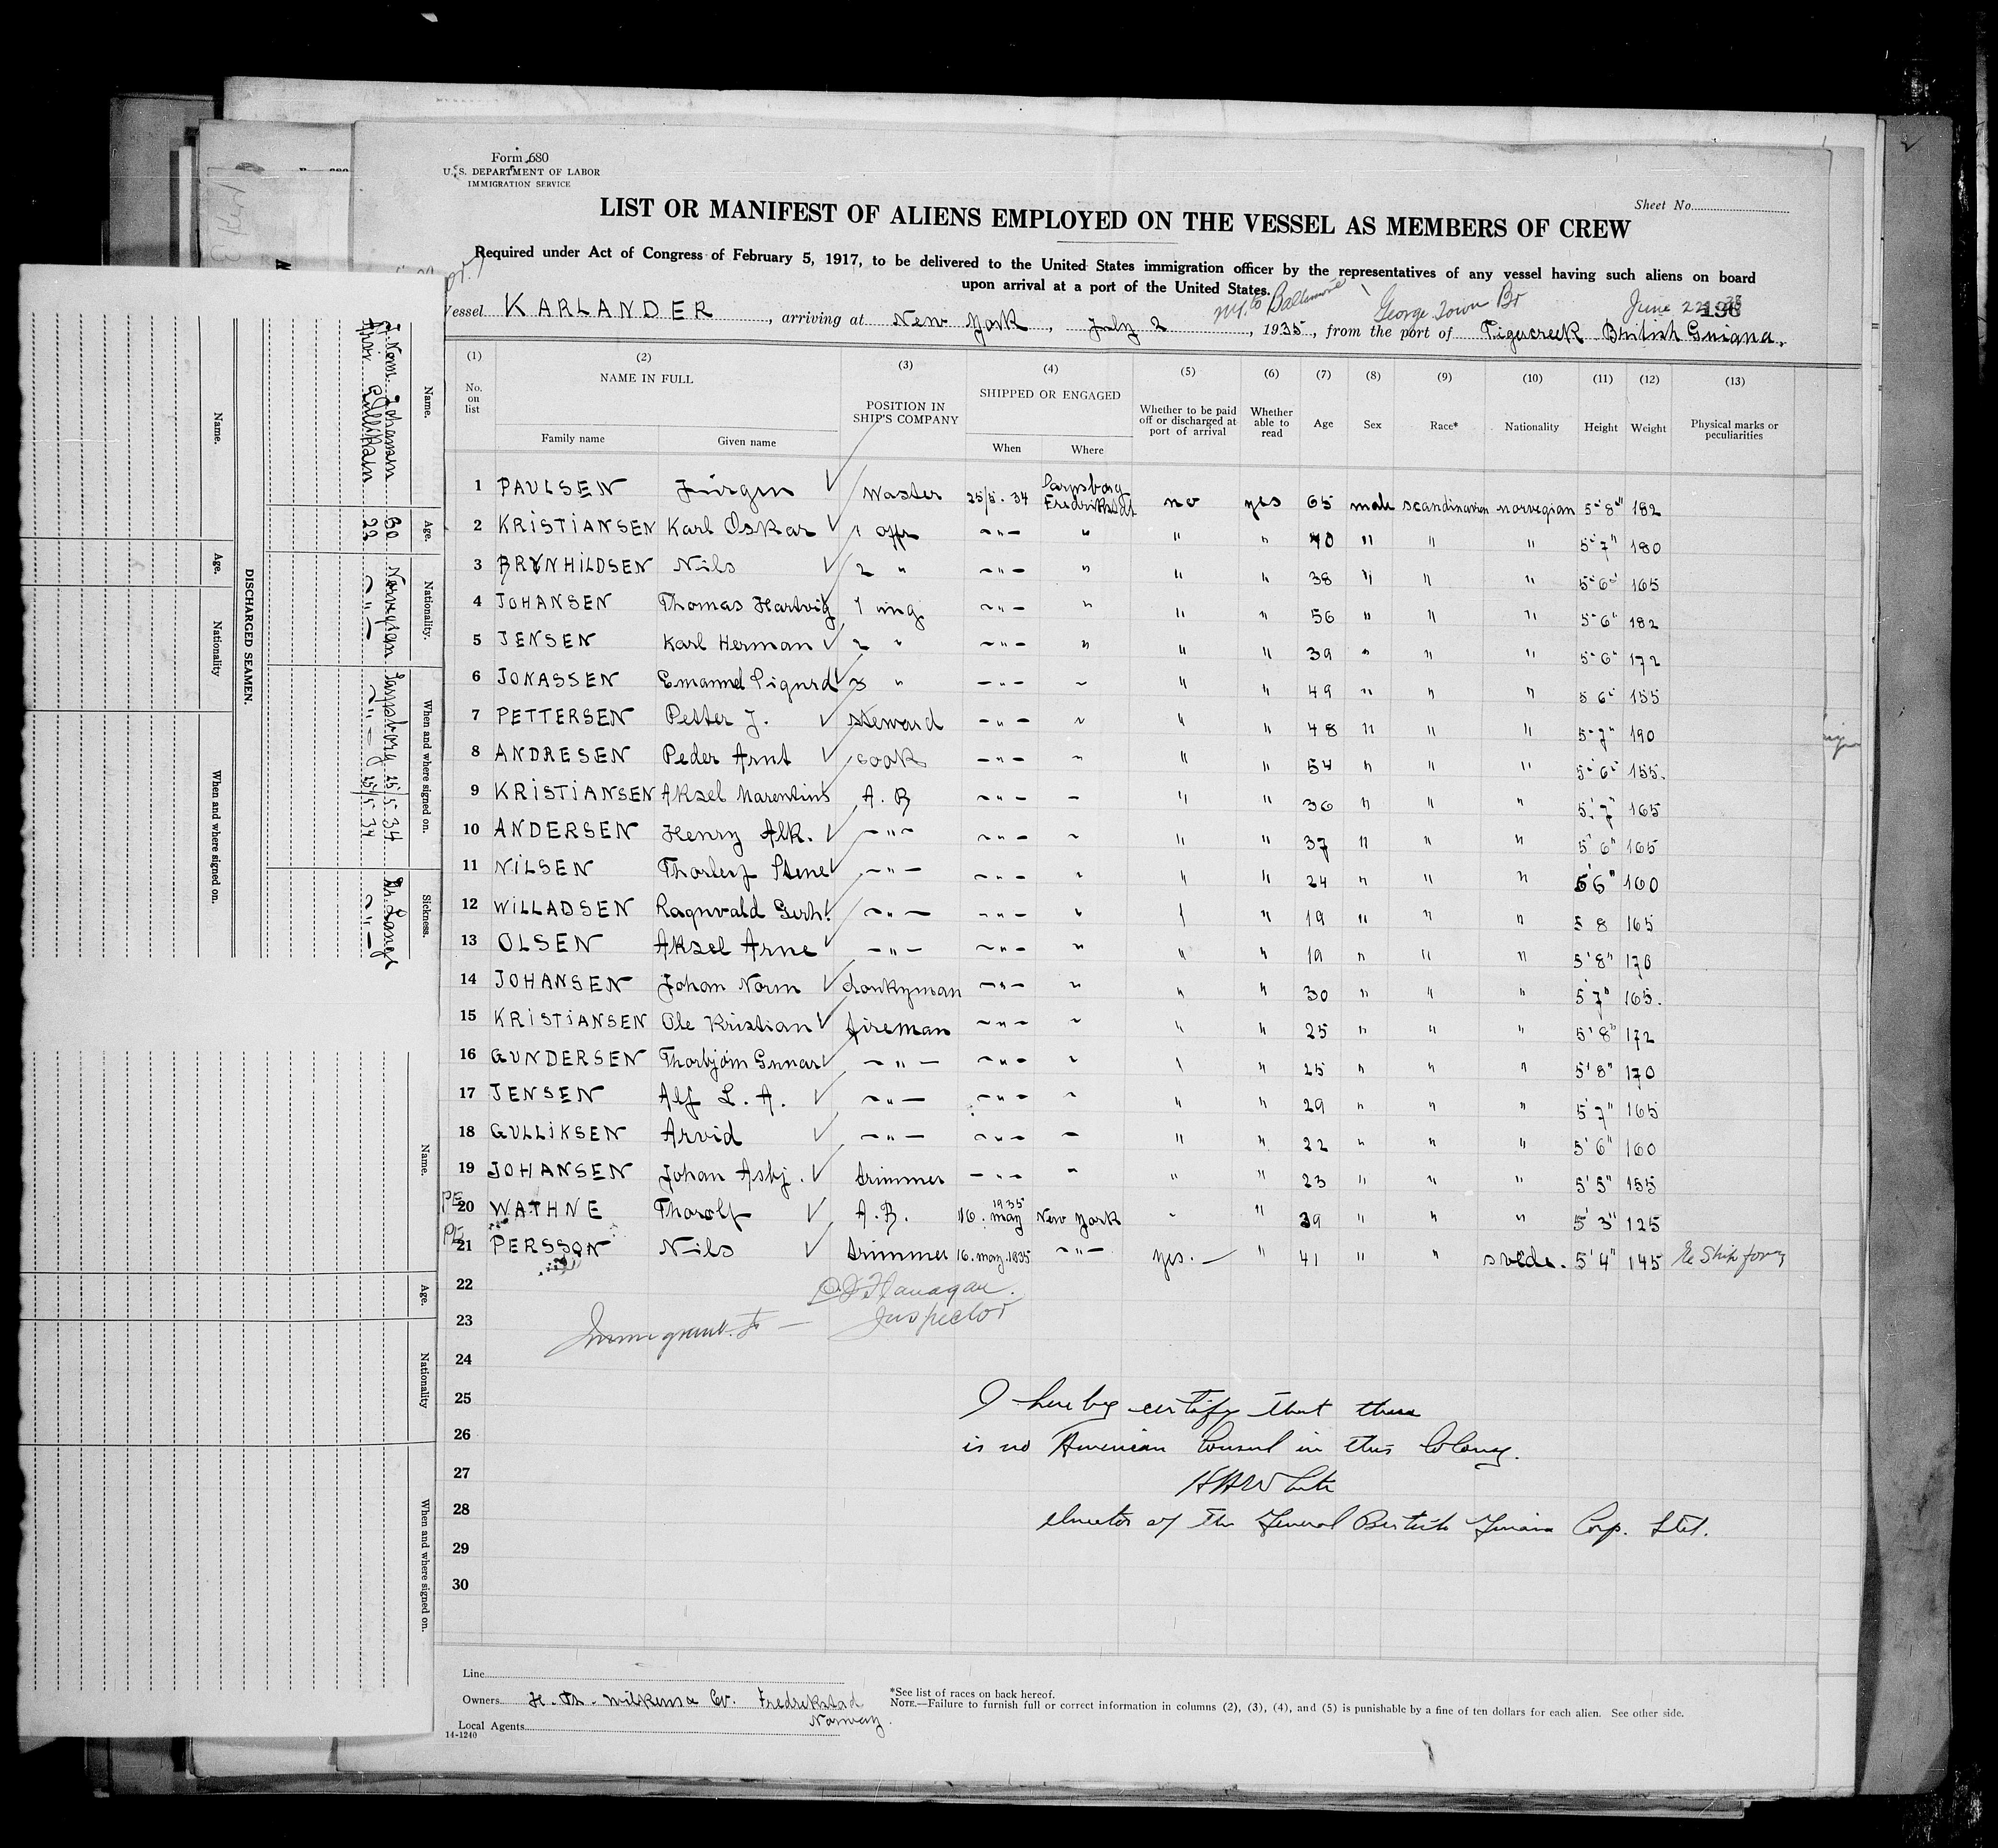 Form 680
U. S. DEPARTMENT OF LABOR
IMMIGRATION SERVICE
Sheet No.
LIST OR MANIFEST OF ALIENS EMPLOYED ON THE VESSEL AS MEMBERS OF CREW
Required under Act of Congress of February 5, 1917, to be delivered to the United States immigration officer by the representatives of any vessel having such aliens on board
upon arrival at a port of the United States.
to Baltimore George Town Br June 22
Vessel KARLANDER, arriving at New York, July 2, 1935, from the port of British Guiana.
(1) (2) (3) (4) (5) (6) (7) (8) (9) (10) (11) (12) (13)
No. on list NAME IN FULL POSITION IN SHIP'S COMPANY SHIPPED OR ENGAGED Whether to be paid off or discharged at port of arrival Whether able to read Age Sex Race* Nationality Height Weight Physical marks or peculiarities
Family name Given name When Where
1 PAULSEN Jürgen Master 25/5. 34 Sarpsborg Fredrikstad no yes 65 male scandinavien norvegian 5'8" 182
2 KRISTIANSEN Karl Oskar 1 offr -"- " " " 40 " " " 5'7" 180
3 BRYNHILDSEN Nils 2 " -"- " " " 38 " " " 5'6" 165
4 JOHANSEN Thomas Hartvig 1 ing -"- " " " 56 " " " 5'6" 182
5 JENSEN Karl Herman 2 " -"- " " " 39 " " " 5'6" 172
6 JONASSEN Emanuel Sigurd 3 " -"- " " " 49 " " " 5 6" 155
7 PETTERSEN Petter J. steward -"- " " " 48 " " " 5'7" 190
8 ANDRESEN Peder Arnt cook -"- " " " 54 " " " 5'6" 155.
9 KRISTIANSEN Aksel Marentius A. B -"- " " " 36 " " " 5'7" 165
10 ANDERSEN Henry Alk. -"- -"- " " " 37 " " " 5'6" 165
11 NILSEN Thorleif Stene -"- -"- " " " 24 " " " 5'6" 160
12 WILLADSEN Ragnvald Gerh. -"- -"- " " " 19 " " " 5 8 165
13 OLSEN Aksel Arne -"- -"- " " " 19 " " " 5'8" 170
14 JOHANSEN Johan Norm donkyman -"- " " " 30 " " " 5'7" 165.
15 KRISTIANSEN Ole Kristian fireman -"- " " " 25 " " " 5'8" 172
16 GUNDERSEN Thorbjörn Gunnar -"- -"- " " " 25 " " " 5'8" 170
17 JENSEN Alf L. A. -"- -"- " " " 29 " " " 5'7" 165
18 GULLIKSEN Arvid -"- -"- " " " 22 " " " 5'6" 160
19 JOHANSEN Johan Asbj. trimmer -"- " " " 23 " " " 5'5" 155
20 WATHNE Thorolf A. B. 16. may 1935 New York " " 39 " " " 5'3" 125
21 PERSSON Nils trimmer 16. may. 1835 -"- yes. " 41 " " svede. 5'4" 145
22 Flanagan.
23 Inspector
24
25 I hereby certify that there
26 is no American Consul in this Colony.
27 White
28 director of the General British Guiana Corp. Ltd.
29
30
Line
Owners Fredrikstad
Norway.
Local Agents
14-1240
*See list of races on back hereof.
NOTE.—Failure to furnish full or correct information in columns (2), (3), (4), and (5) is punishable by a fine of ten dollars for each alien. See other side.
DISCHARGED SEAMEN.
Name. Age. Nationality When and where signed on.
Name. Age. Nationality. When and where signed on. Sickness.
J. Norm Johansen 30 Norvegian Sarpsborg 25/5. 34
Arvi Gulliksen 22 -"- -"- 25/5. 34 -"-
Name. Age. Nationality When and where signed on.